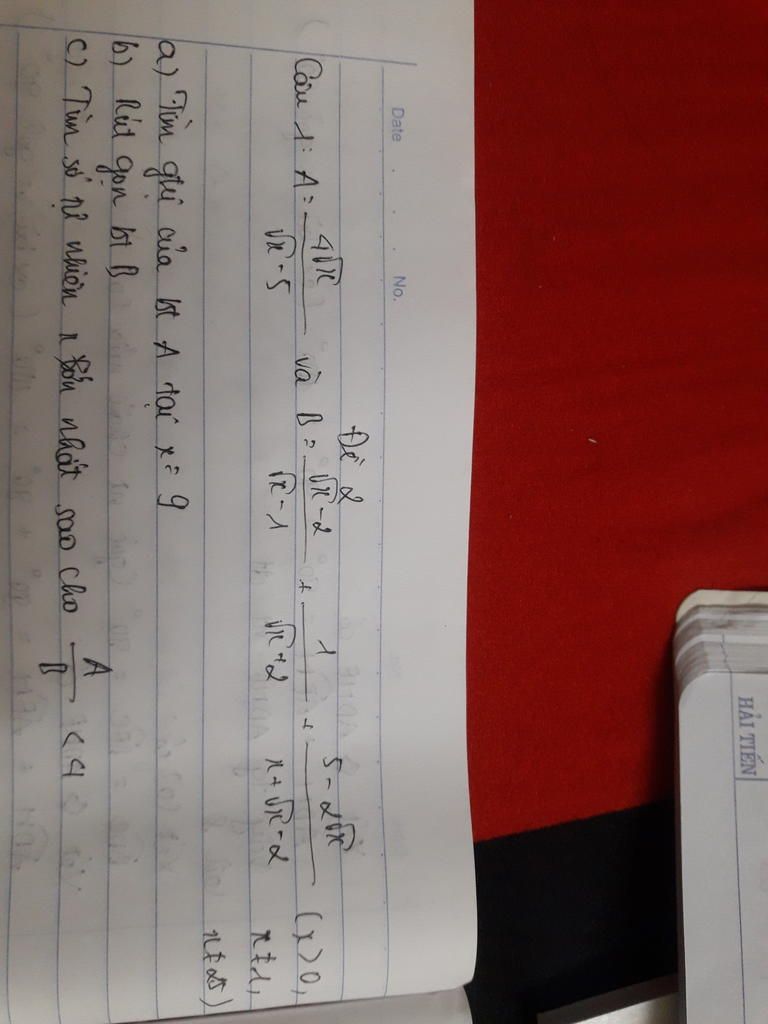 Date . . . . No.
Đề 2
Câu 1: A = 4√x / √x - 5 và B = √x - 2 / √x - 1 + 1 / √x + 2 + 5 - 2√x / x + √x - 2 (x > 0,
x ≠ 1,
x ≠ 25)
a) Tìm gtri của bt A tại x = 9
b) Rút gọn bt B
c) Tìm số tự nhiên x lớn nhất sao cho A / B < 4
HẢI TIẾN